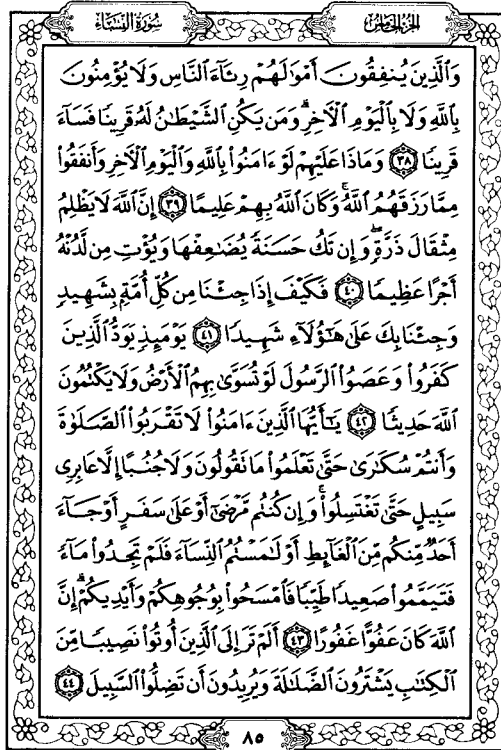 سُورَةُ النِّسَاءِ
الجُزءُ الخَامِسُ
وَٱلَّذِينَ يُنفِقُونَ أَمْوَٰلَهُمْ رِئَآءَ ٱلنَّاسِ وَلَا يُؤْمِنُونَ
بِٱللَّهِ وَلَا بِٱلْيَوْمِ ٱلْءَاخِرِ ۗ وَمَن يَكُنِ ٱلشَّيْطَٰنُ لَهُۥ قَرِينًا فَسَآءَ
قَرِينًا ٣٨ وَمَاذَا عَلَيْهِمْ لَوْ ءَامَنُوا۟ بِٱللَّهِ وَٱلْيَوْمِ ٱلْءَاخِرِ وَأَنفَقُوا۟
مِمَّا رَزَقَهُمُ ٱللَّهُ ۚ وَكَانَ ٱللَّهُ بِهِمْ عَلِيمًا ٣٩ إِنَّ ٱللَّهَ لَا يَظْلِمُ
مِثْقَالَ ذَرَّةٍ ۖ وَإِن تَكُ حَسَنَةً يُضَٰعِفْهَا وَيُؤْتِ مِن لَّدُنْهُ
أَجْرًا عَظِيمًا ٤٠ فَكَيْفَ إِذَا جِئْنَا مِن كُلِّ أُمَّةٍۭ بِشَهِيدٍ
وَجِئْنَا بِكَ عَلَىٰ هَٰٓؤُلَآءِ شَهِيدًا ٤١ يَوْمَئِذٍ يَوَدُّ ٱلَّذِينَ
كَفَرُوا۟ وَعَصَوُا۟ ٱلرَّسُولَ لَوْ تُسَوَّىٰ بِهِمُ ٱلْأَرْضُ وَلَا يَكْتُمُونَ
ٱللَّهَ حَدِيثًا ٤٢ يَٰٓأَيُّهَا ٱلَّذِينَ ءَامَنُوا۟ لَا تَقْرَبُوا۟ ٱلصَّلَوٰةَ
وَأَنتُمْ سُكَٰرَىٰ حَتَّىٰ تَعْلَمُوا۟ مَا تَقُولُونَ وَلَا جُنُبًا إِلَّا عَابِرِى
سَبِيلٍ حَتَّىٰ تَغْتَسِلُوا۟ ۚ وَإِن كُنتُم مَّرْضَىٰٓ أَوْ عَلَىٰ سَفَرٍ أَوْ جَآءَ
أَحَدٌ مِّنكُم مِّنَ ٱلْغَآئِطِ أَوْ لَٰمَسْتُمُ ٱلنِّسَآءَ فَلَمْ تَجِدُوا۟ مَآءً
فَتَيَمَّمُوا۟ صَعِيدًا طَيِّبًا فَٱمْسَحُوا۟ بِوُجُوهِكُمْ وَأَيْدِيكُمْ ۗ إِنَّ
ٱللَّهَ كَانَ عَفُوًّا غَفُورًا ٤٣ أَلَمْ تَرَ إِلَى ٱلَّذِينَ أُوتُوا۟ نَصِيبًا مِّنَ
ٱلْكِتَٰبِ يَشْتَرُونَ ٱلضَّلَٰلَةَ وَيُرِيدُونَ أَن تَضِلُّوا۟ ٱلسَّبِيلَ ٤٤
٨٥